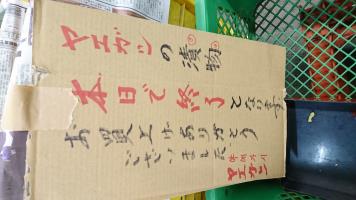 ヤエガシの漬物
本日で終了となります
お買上げありがとう
ございました
ヤエガシ